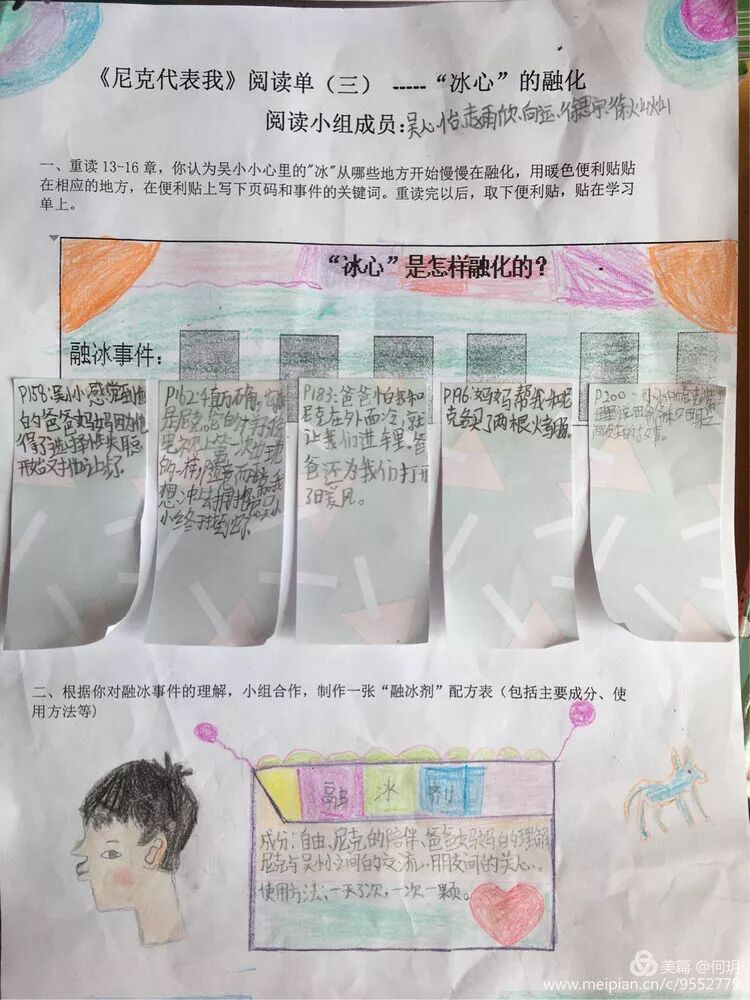 《尼克代表我》阅读单（三） -----“冰心”的融化
阅读小组成员:吴心怡.赵雨欣.向运.徐灿灿
一、重读13-16章，你认为吴小小心里的"冰"从哪些地方开始慢慢在融化，用暖色便利贴贴
在相应的地方，在便利贴上写下页码和事件的关键词。重读完以后，取下便利贴，贴在学习
单上。
“冰心”是怎样融化的？
融冰事件：
P158:吴小小感觉到他
的爸爸妈妈因为他
得了选择性失聪
开始对他上
P162:
是尼克。
第一次
的一样
想冲去拥抱
小终于
P183:爸爸怕我和
尼克在外面冷，就
让我们进车里。爸
爸还为我们打开
了暖风。
P196:妈妈帮我和尼
克多买了两根火腿肠。
P200:
二、根据你对融冰事件的理解，小组合作，制作一张“融冰剂”配方表（包括主要成分、使
用方法等）
融冰剂
成分：自由、尼克的陪伴、爸爸妈妈的理解
尼克与吴小小之间的交流，朋友间的关心。
使用方法：一天3次，一次一颗。
美篇 @何玥
www.meipian.cn/c/9552779